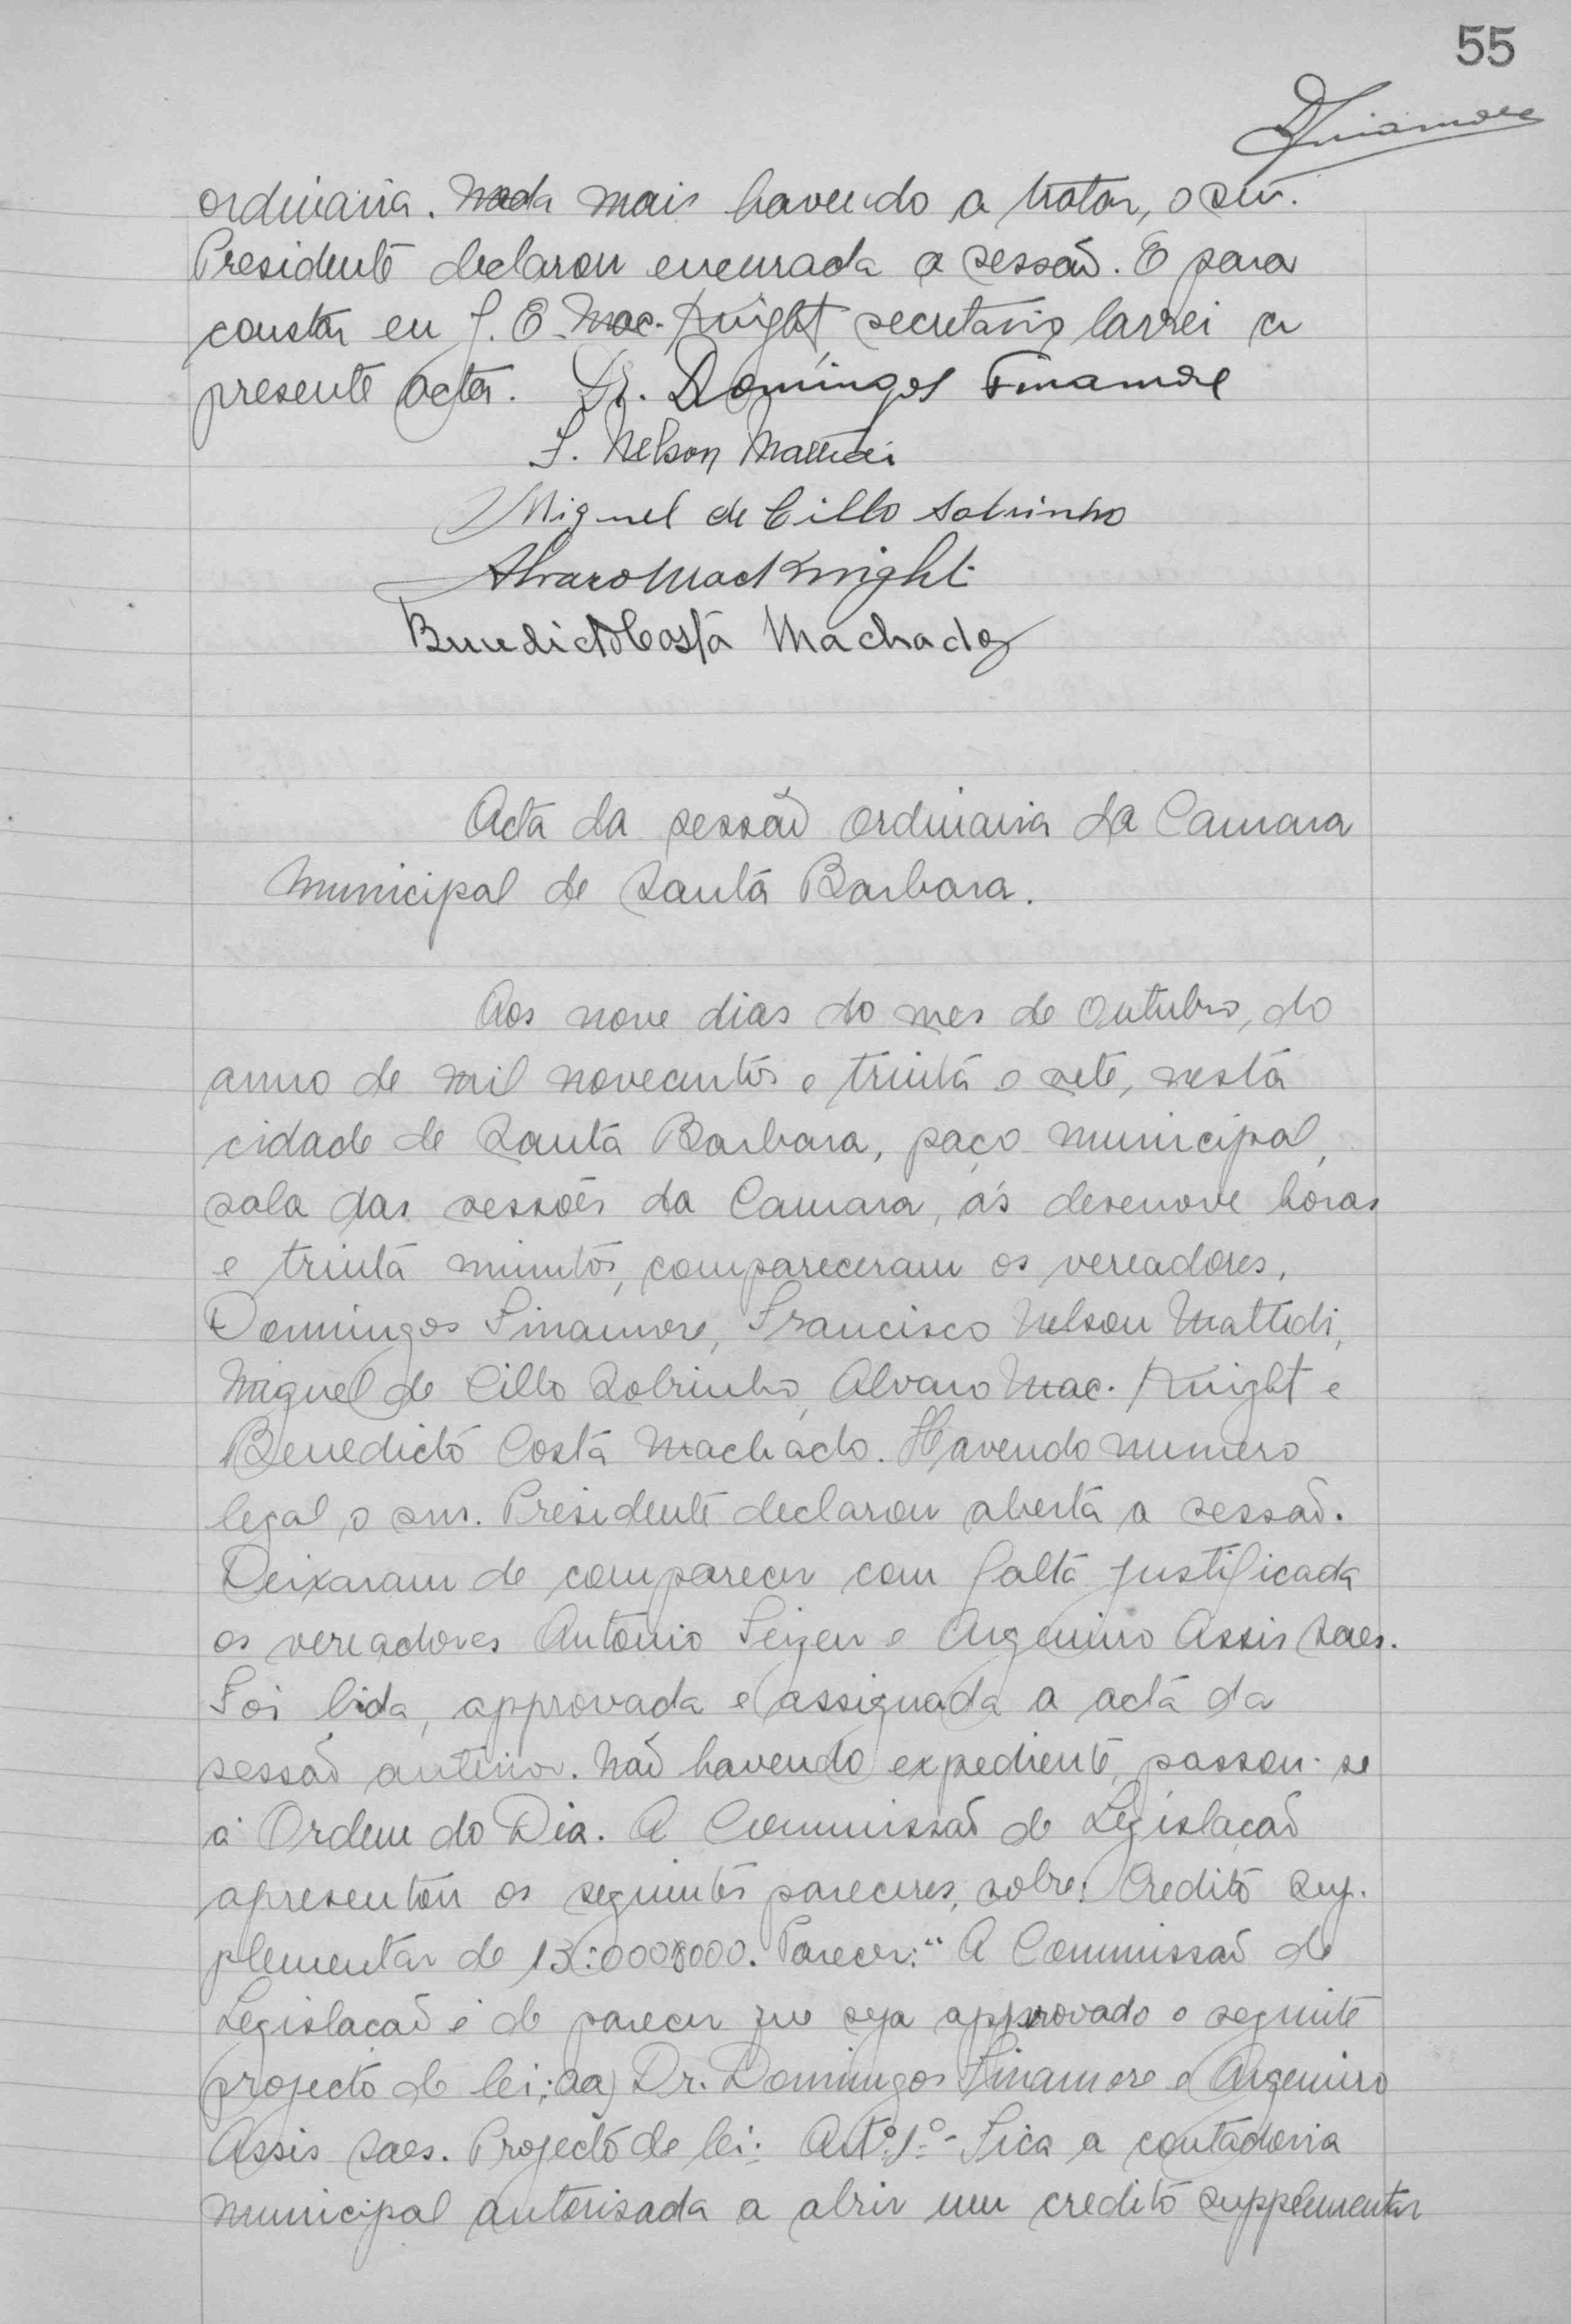 55
DFinamore
ordinaria. Nada mais havendo a tratar, o snr.
Presidente declarou encerrada a sessão. E para
constar eu J. E. Mac-Knight secretario larvei a
presente acta. Dr. Domingos Finamore
F. Nelson Mattedi
Miguel de Cillo Sobrinho
Alvaro Mac Knight
Benedicto Costa Machado
Acta da sessão ordinaria da Camara
Municipal de Santa Barbara.
Aos nove dias do mes de Outubro, do
anno de mil novecentos e trinta e sete, nesta
cidade de Santa Barbara, paço municipal,
sala das sessões da Camara, ás desenove horas
e trinta minutos, compareceram os vereadores,
Domingos Finamore, Francisco Nelson Mattedi,
Miguel de Cillo Sobrinho, Alvaro Mac-Knight e
Benedicto Costa Machado. Havendo numero
legal, o snr. Presidente declarou aberta a sessão.
Deixaram de comparecer com falta justificada
os vereadores Antonio e Argemiro Assis Saes.
Foi lida, approvada e assignada a acta da
sessão anterior. Não havendo expediente, passou-se
á Ordem do Dia. A Commissão de Legislação
apresentou os seguintes pareceres, sobre: Credito Sup-
plementar de 13:000$000. Parecer: "A Commissão de
Legislação é de parecer que seja approvado o seguinte
projecto de lei: aa) Dr. Domingos Finamore e Argemiro
Assis Saes. Projecto de lei: Artº 1º - Fica a contadoria
municipal autorisada a abrir um credito supplementar